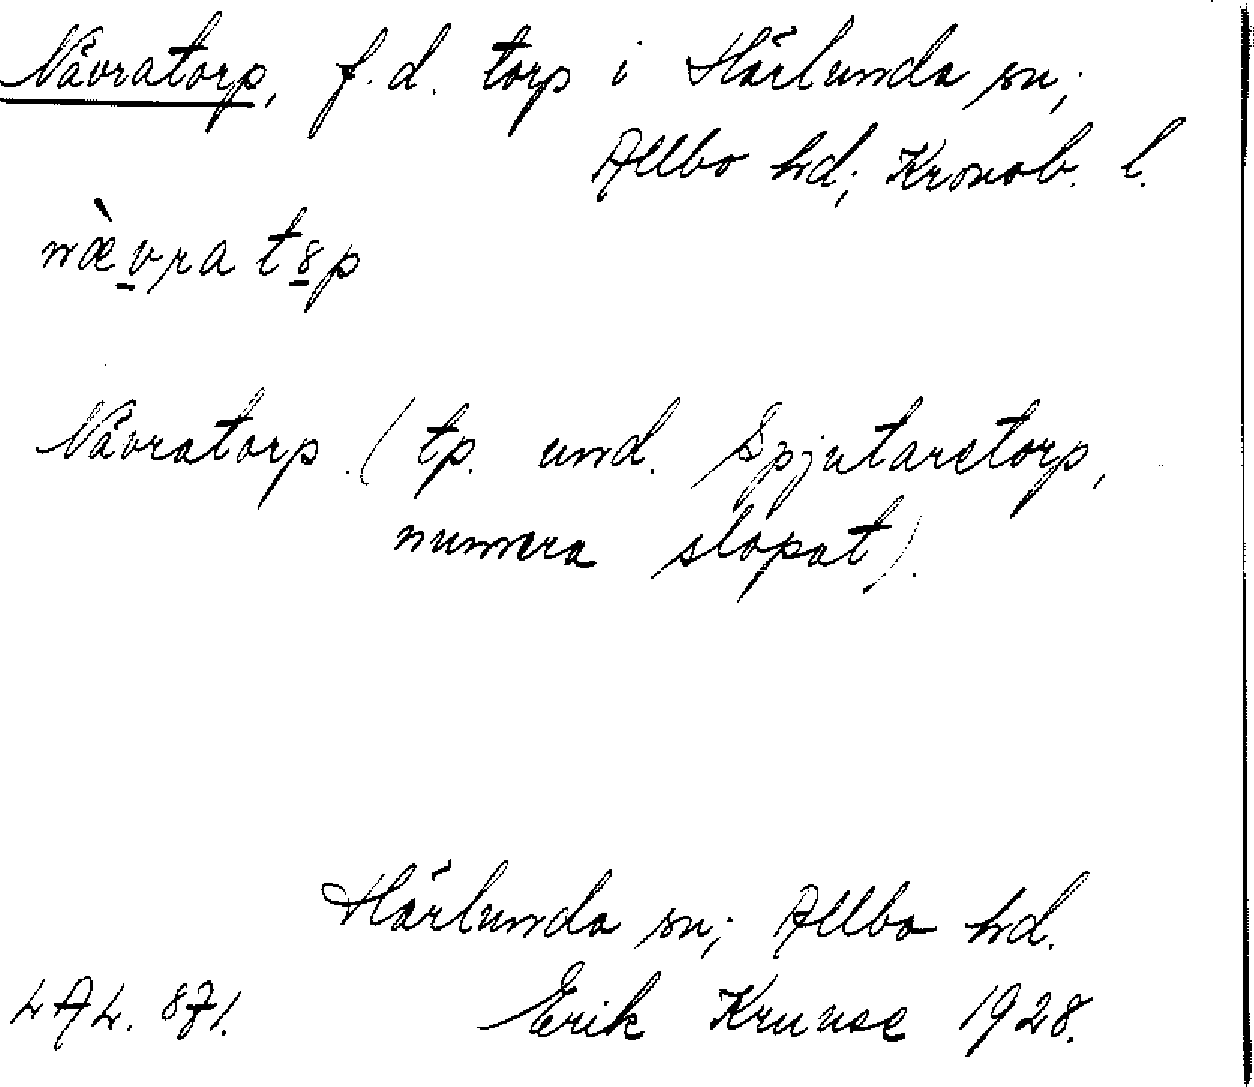 Nävratorp, f.d. torp i Härlunda sn;
Allbo hd; Kronob. l.
nævra t8p
Nävratorp. (tp. und. Spjutaretorp,
numera slopat).
Härlunda sn; Allbo hd.
LAL. 871. Erik Kruuse 1928.